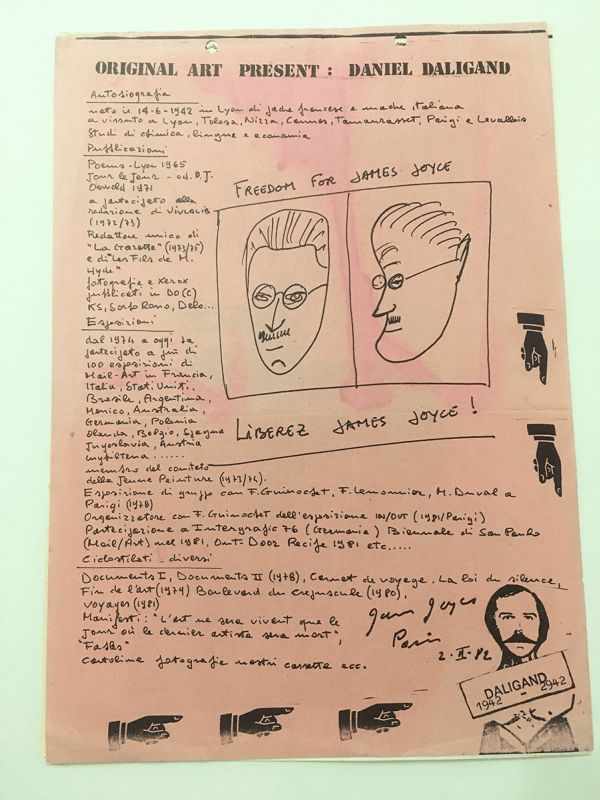 ORIGINAL ART PRESENT : DANIEL DALIGAND
Autobiografia
nato il 14-6-1942 in Lyon di padre francese e madre italiana
a vissuto a Lyon, Tolosa, Nizza, Cannes, Tamanrasset, Parigi e Levallois
Studi di chimica, lingue e economia
Pubblicazioni
Poems - Lyon 1965
Jour le Jour - ed. P.J.
Oswald 1971
a partecipato alla
redazione di
(1972/73)
Redattore unico di
"La Gazette" (1973/75)
e di "Les Fils de M.
Hyde"
fotografie e xerox
pubblicati in DO(C)
KS, Sorbo Rosso, Delo...
Esposizioni
dal 1974 a oggi ha
partecipato a più di
100 esposizioni di
Mail-Art in Francia,
Italia, Stati Uniti,
Brasile, Argentina,
Mexico, Australia,
Germania, Polonia
Olanda, Belgio, Spagna
Jugoslavia, Austria
Inghilterra ......
FREEDOM FOR JAMES JOYCE
LIBEREZ JAMES JOYCE !
membro del comitato
della Jeune Peinture (1973/76).
Esposizione di gruppo con F. Guinochet, F. Lemonnier, M. Duval a
Parigi (1978)
Organizzatore con F. Guinochet dell'esposizione IN/OUT (1981/Parigi)
Partecipazione a Intergrafic 76 (Germania) Biennale di San Paulo
(Mail/Art) nel 1981, Out-Door Recife 1981 etc.....
Ciclostilati - diversi
Documents I, Documents II (1978), Carnet de voyage, La loi du silence,
Fin de l'art (1979) Boulevard du Crépuscule (1980),
Voyages (1981)
Manifesti : "L'art ne sera vivant que le
Jour où le dernier artiste sera mort",
Cartoline fotografie nastri cassetta ecc.
James Joyce
Paris
2-II-82
DALIGAND
1942 - 2942